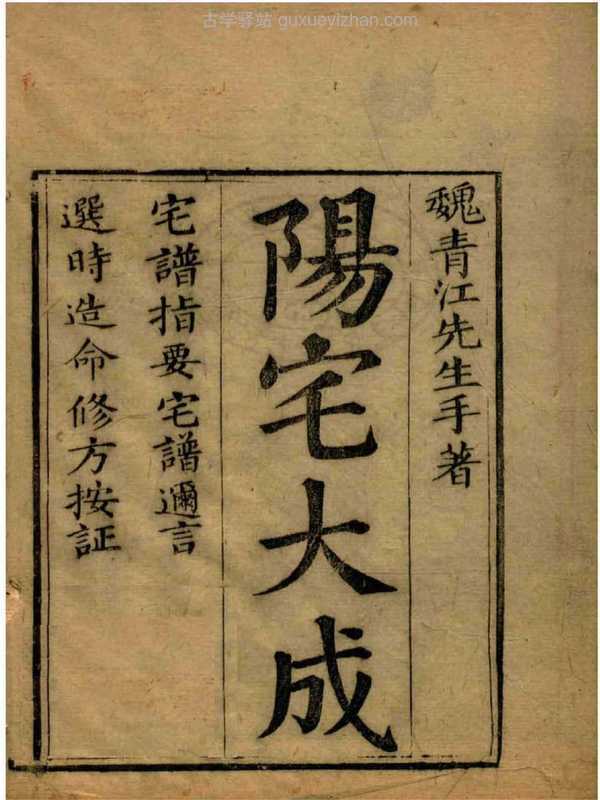 古学驿站 guxueyizhan.com
魏青江先生手著
陽宅大成
宅譜指要宅譜邇言
選時造命修方按証